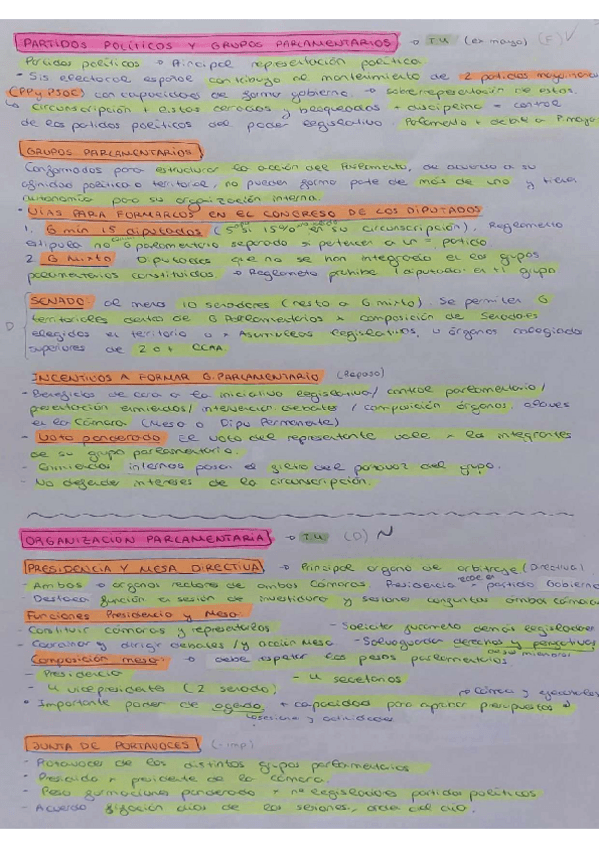 PARTIDOS POLÍTICOS Y GRUPOS PARLAMENTARIOS → T.U (ex mayo) (F) √
Partidos políticos → Principal representación política.
• Sis electoral español contribuye al mantenimiento de 2 partidos mayoritarios
(PP y PSOE) con capacidad de formar gobierno. → sobrerrepresentación de estos.
↳ Circunscripción + listas cerradas y bloqueadas + disciplina = control
de los partidos políticos del poder legislativo. Parlamento + débil a P.mayo
GRUPOS PARLAMENTARIOS
Conformados para estructurar la acción del Parlamento, de acuerdo a su
afinidad política o territorial, no pueden formar parte de más de uno y tienen
autonomía para su organización interna.
• VÍAS PARA FORMARLOS EN EL CONGRESO DE LOS DIPUTADOS
1. G mín 15 diputados (5 si 15% en su circunscripción). Reglamento
estipula no G parlamentario separado si pertenecen a un = partido
2. G Mixto Diputados que no se han integrado en los grupos
parlamentarios constituidos → Reglamento prohíbe 1 diputado en 1 grupo
SENADO: al menos 10 senadores (resto a G mixto). Se permiten G
territoriales dentro de G Parlamentarios x composición de Senadores
elegidos en territorio o x Asambleas Legislativas, u órganos colegiados
superiores de 2 o + CCAA.
INCENTIVOS A FORMAR G.PARLAMENTARIO (Repaso)
- Beneficios de cara a la iniciativa legislativa / control parlamentario /
presentación enmiendas / intervención debates / composición órganos claves
en la Cámara (Mesa o Dipu Permanente)
- Voto ponderado El voto del representante vale = los integrantes
de su grupo parlamentario.
- Enmiendas internas pasan el filtro del portavoz del grupo.
- No defender intereses de la circunscripción.
ORGANIZACIÓN PARLAMENTARIA → T.U (D) N
PRESIDENCIA Y MESA DIRECTIVA → Principal órgano de arbitraje (Directiva)
- Ambos → órganos rectores de ambas Cámaras. Presidencia partido Gobierno
Destaca función en sesión de investidura y sesiones conjuntas ambas cámaras
Funciones Presidencia y Mesa:
- Constituir cámaras y representarlas - Solicitar juramento demás legisladores
- Coordinar y dirigir debates / y acción Mesa. - Salvaguardar derechos y prerrogativas
Composición mesa: → debe respetar los pesos parlamentarios
- Presidencia - 4 secretarios
- 4 vicepresidentes (2 senado)
• Importante poner de agenda, + capacidad para aprobar presupuestos
↳ sesiones y actividades
JUNTA DE PORTAVOCES (- imp)
- Portavoces de los distintos grupos parlamentarios
- Presidido x presidente de la cámara.
- Peso formaciones ponderado x nº legisladores partidos políticos
- Acuerdo fijación días de las sesiones, orden del día.